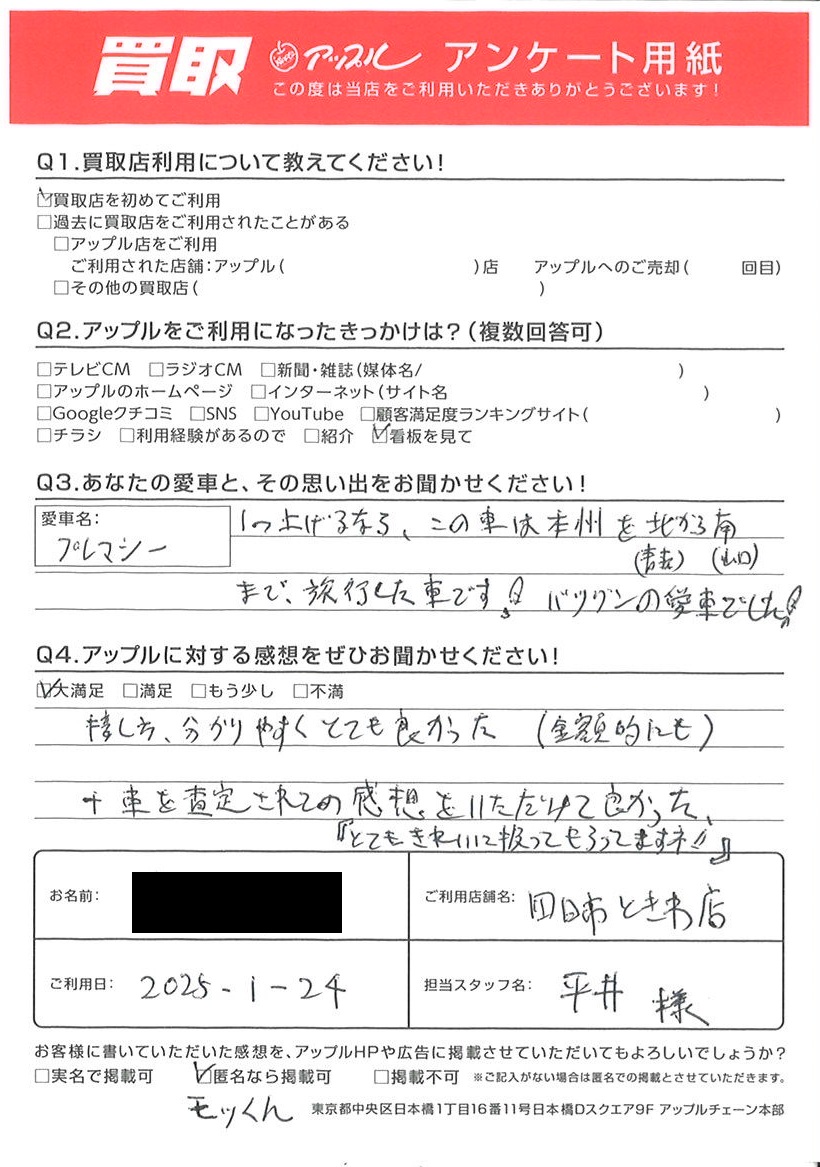 買取 アップル アンケート用紙
この度は当店をご利用いただきありがとうございます!
Q1.買取店利用について教えてください!
☑買取店を初めてご利用
□過去に買取店をご利用されたことがある
□アップル店をご利用
ご利用された店舗:アップル( )店 アップルへのご売却( 回目)
□その他の買取店( )
Q2.アップルをご利用になったきっかけは?(複数回答可)
□テレビCM □ラジオCM □新聞・雑誌(媒体名/ )
□アップルのホームページ □インターネット(サイト名 )
□Googleクチコミ □SNS □YouTube □顧客満足度ランキングサイト( )
□チラシ □利用経験があるので □紹介 ☑看板を見て
Q3.あなたの愛車と、その思い出をお聞かせください!
愛車名:
プレマシー
1つ上げるなら、この車は本州を北から南
(青森) (山口)
まで、旅行した車です! バツグンの愛車でした!
Q4.アップルに対する感想をぜひお聞かせください!
☑大満足 □満足 □もう少し □不満
接し方、分かりやすくとても良かった (金額的にも)
+ 車を査定されての感想をいただけて良かった、
『とてもきれいに扱ってもらってますネ!!』
お名前:
ご利用店舗名: 四日市ときわ店
ご利用日: 2025-1-24
担当スタッフ名: 平井 様
お客様に書いていただいた感想を、アップルHPや広告に掲載させていただいてもよろしいでしょうか?
□実名で掲載可 ☑匿名なら掲載可 □掲載不可 ※ご記入がない場合は匿名での掲載とさせていただきます。
モッくん 東京都中央区日本橋1丁目16番11号日本橋Dスクエア9F アップルチェーン本部